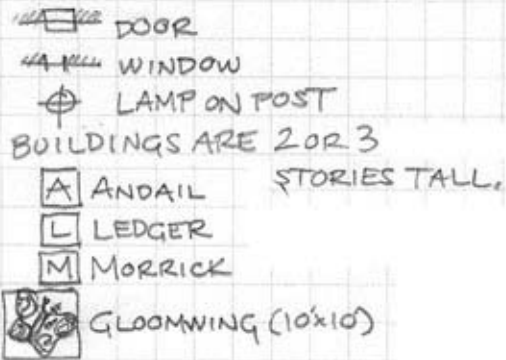 DOOR
WINDOW
LAMP ON POST
BUILDINGS ARE 2 OR 3
STORIES TALL.
A ANDAIL
L LEDGER
M MORRICK
GLOOMWING (10'x10')